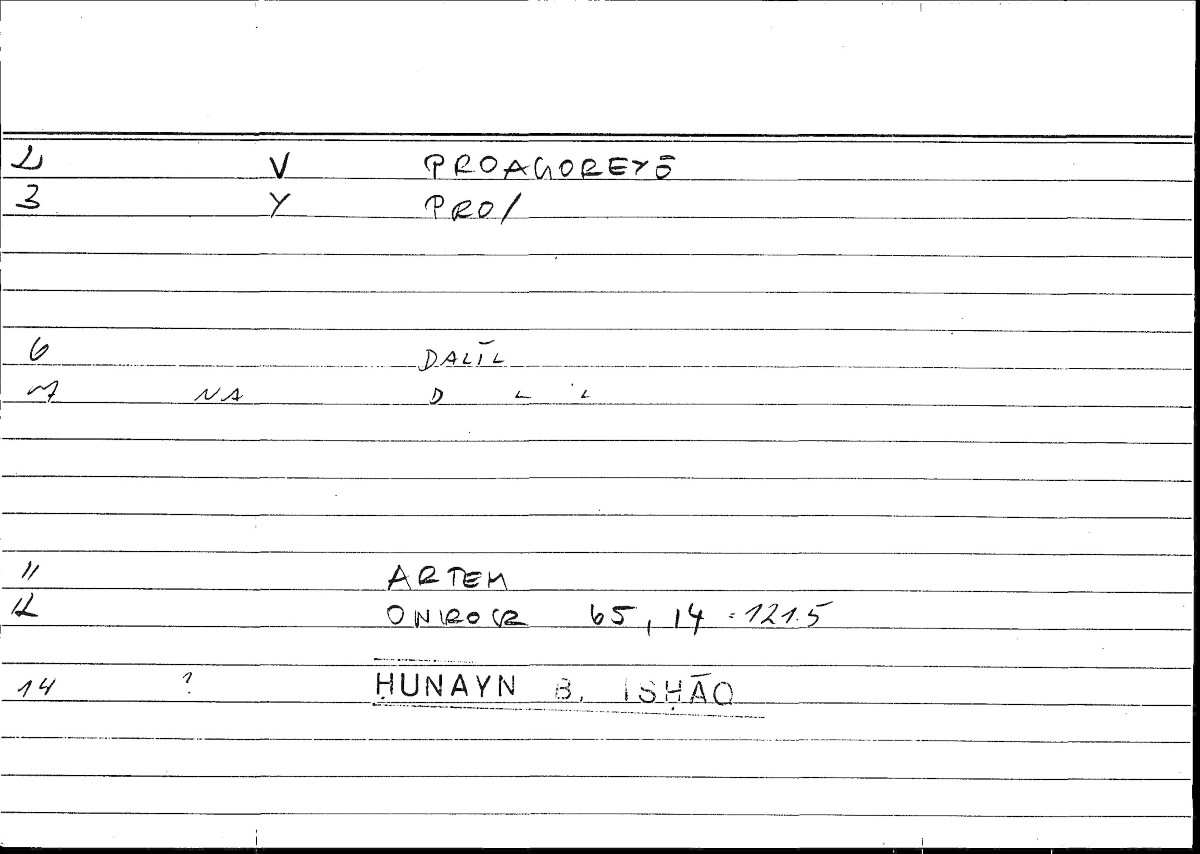 2 V PROAGOREYŌ
3 Y PRO/
6 DALĪL
7 NA D L ῾L
11 ARTEM
12 ONIROCR 65, 14 = 121.5
14 ? ḤUNAYN B. ISḤĀQ